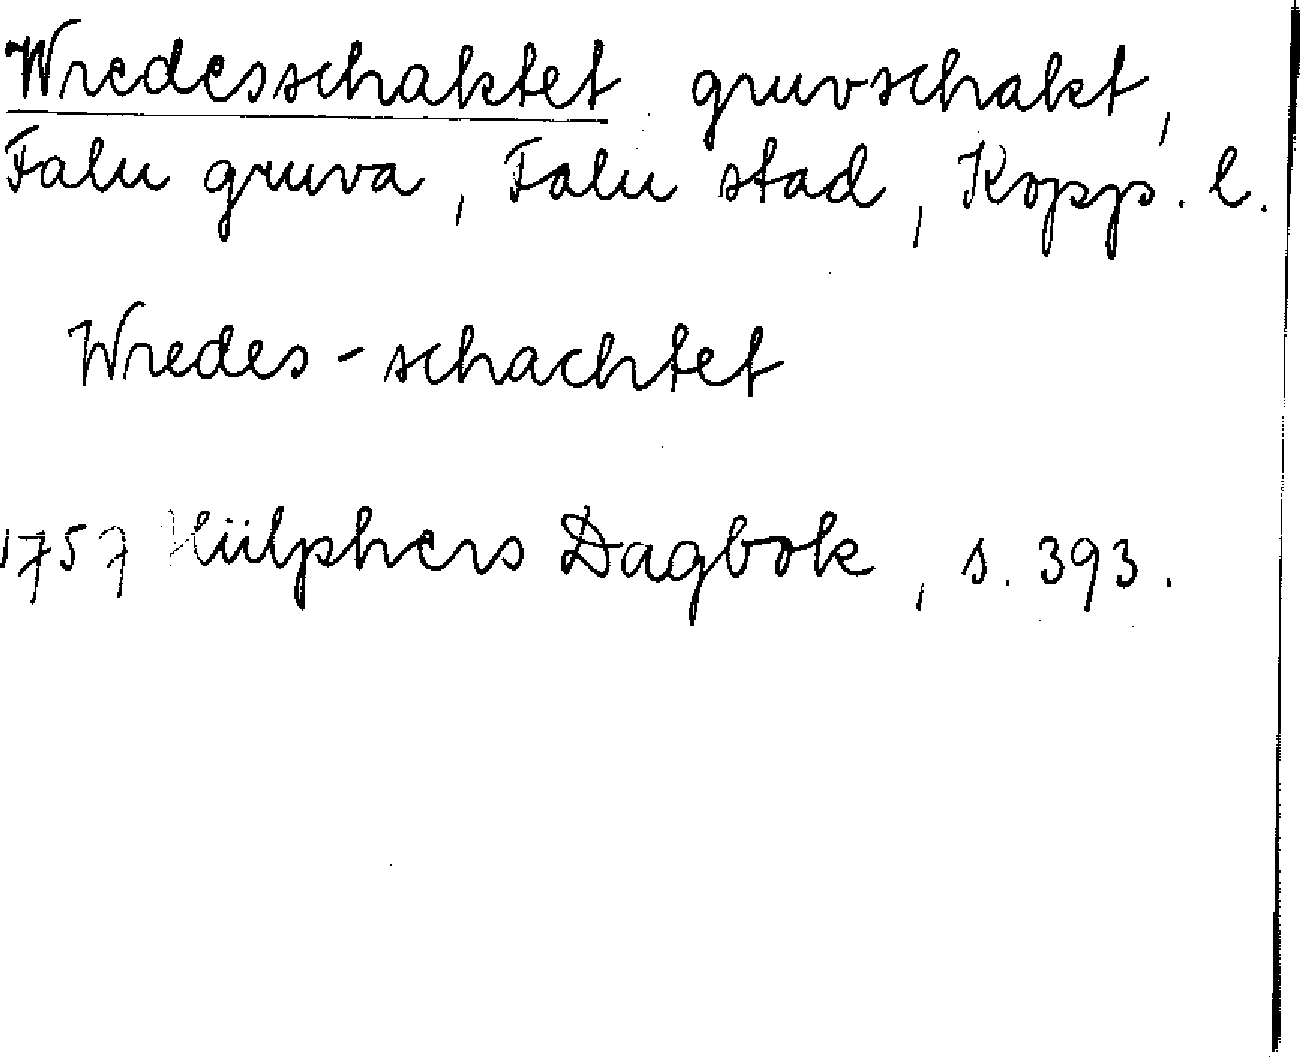 Wredesschaktet gruvschakt,
Falu gruva, Falu stad, Kopp. l.
Wredes-schachtet
1757 Hülphers Dagbok, s. 393.